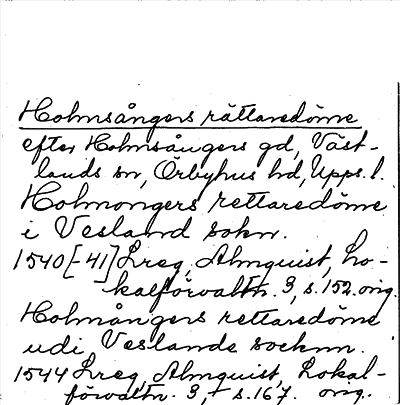 Holmsångers rättaredöme
efter Holmsångers gd, Väst-
lands sn, Örbyhus hd, Upps. l.
Holmongers rettaredöme
i Vesland sokn.
1540[-41] Lreg, Almquist, Lo-
kalförvaltn. 3, s. 152. orig.
Holmångers rettaredöme
udi Veslande socknn.
1544 Lreg, Almquist, Lokal-
förvaltn. 3, s. 167. orig.